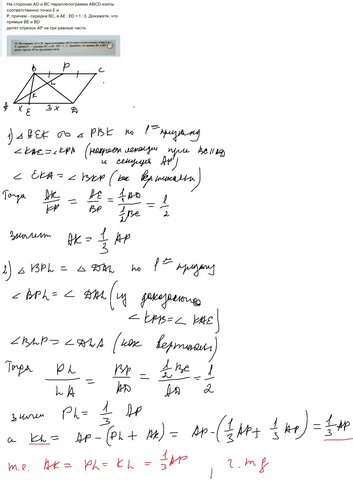 На сторонах AD и BC параллелограмма ABCD взяты
соответственно точки E и
P, причем - середина BC, а AE : ED = 1 : 3. Докажите, что
прямые BE и BD
делят отрезок AP на три равные части.
B P C
L
K
A x E 3x D
1) △ AEK ∞ △ PBK по 1ому признаку
∠KAE = ∠KPB (накрест лежащие при BC||AD
и секущей AP)
∠ EKA = ∠ BKP (как вертикальн)
Тогда AK/KP = AE/BP = 1/4 AD / 1/2 BC = 1/2
значит AK = 1/3 AP
2) △ BPL = △ DAL по 1ому признаку
∠ BPL = ∠ DAL (из доказанного
∠ KPB = ∠ KAE)
∠BLP = ∠DLA (как вертикальн)
Тогда PL/LA = BP/AD = 1/2 BC / AD = 1/2
значит PL = 1/3 AP
а KL = AP - (PL + AK) = AP - (1/3 AP + 1/3 AP) = 1/3 AP
т.е. AK = PL = KL = 1/3 AP , ч. тд